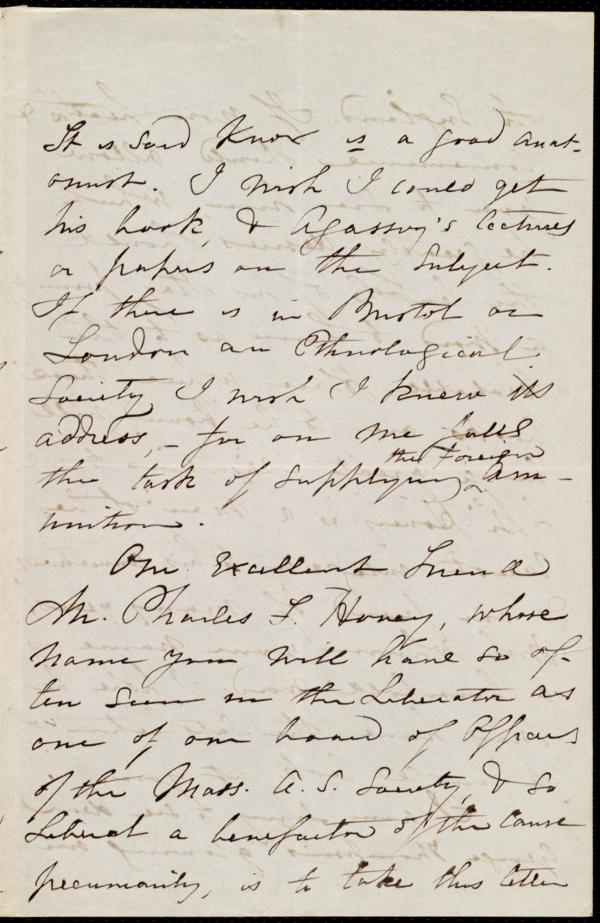 It is said Knox is a good anat-
omist. I wish I could get
his book, & Agassiz's lectures
or papers on the subject.
If there is in Bristol or
London an Ethnological
Society I wish I knew its
address, – for on me falls
the task of supplying the foreign am-
unition.
Our Excellent friend
Mr. Charles F. Hovey, whose
name you will have so of-
ten seen in the Liberator as
one of our board of Officers
of the Mass. A. S. Society, & so
liberal a benefactor of the cause
pecuniarily, is to take this letter